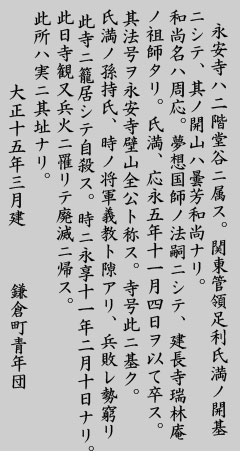 永安寺ハ二階堂谷ニ属ス。関東管領足利氏満ノ開基
ニシテ、其ノ開山ハ曇芳和尚ナリ。
和尚名ハ周応。夢想国師ノ法嗣ニシテ、建長寺瑞林庵
ノ祖師タリ。氏満、応永五年十一月四日ヲ以て卒ス。
其法号ヲ永安寺壁山全公ト称ス。寺号此ニ基ク。
氏満ノ孫持氏、時ノ将軍義教ト隙アリ、兵敗レ勢窮リ
此寺ニ籠居シテ自殺ス。時ニ永享十一年二月十日ナリ。
此日寺観又兵火ニ罹リテ廃滅ニ帰ス。
此所ハ実ニ其址ナリ。
大正十五年三月建 鎌倉町青年団